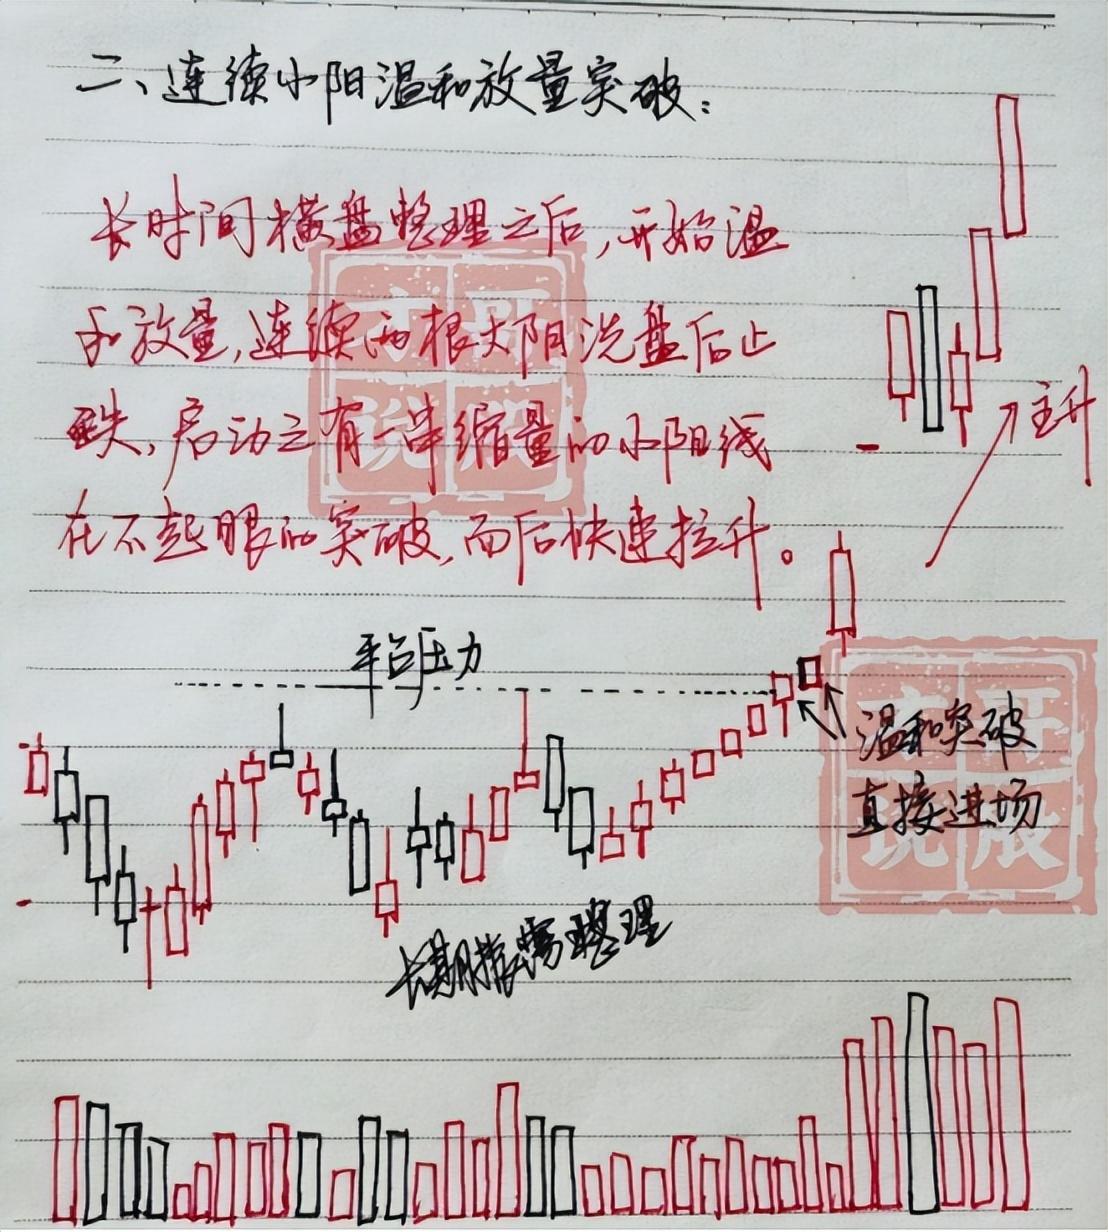 二、连续小阳温和放量突破：
长时间横盘整理之后，开始温
和放量，连续两根大阳洗盘后止
跌，启动之有一串缩量的小阳线
在不起眼的突破，而后快速拉升。
主升
平台压力
温和突破
直接进场
长期震荡整理